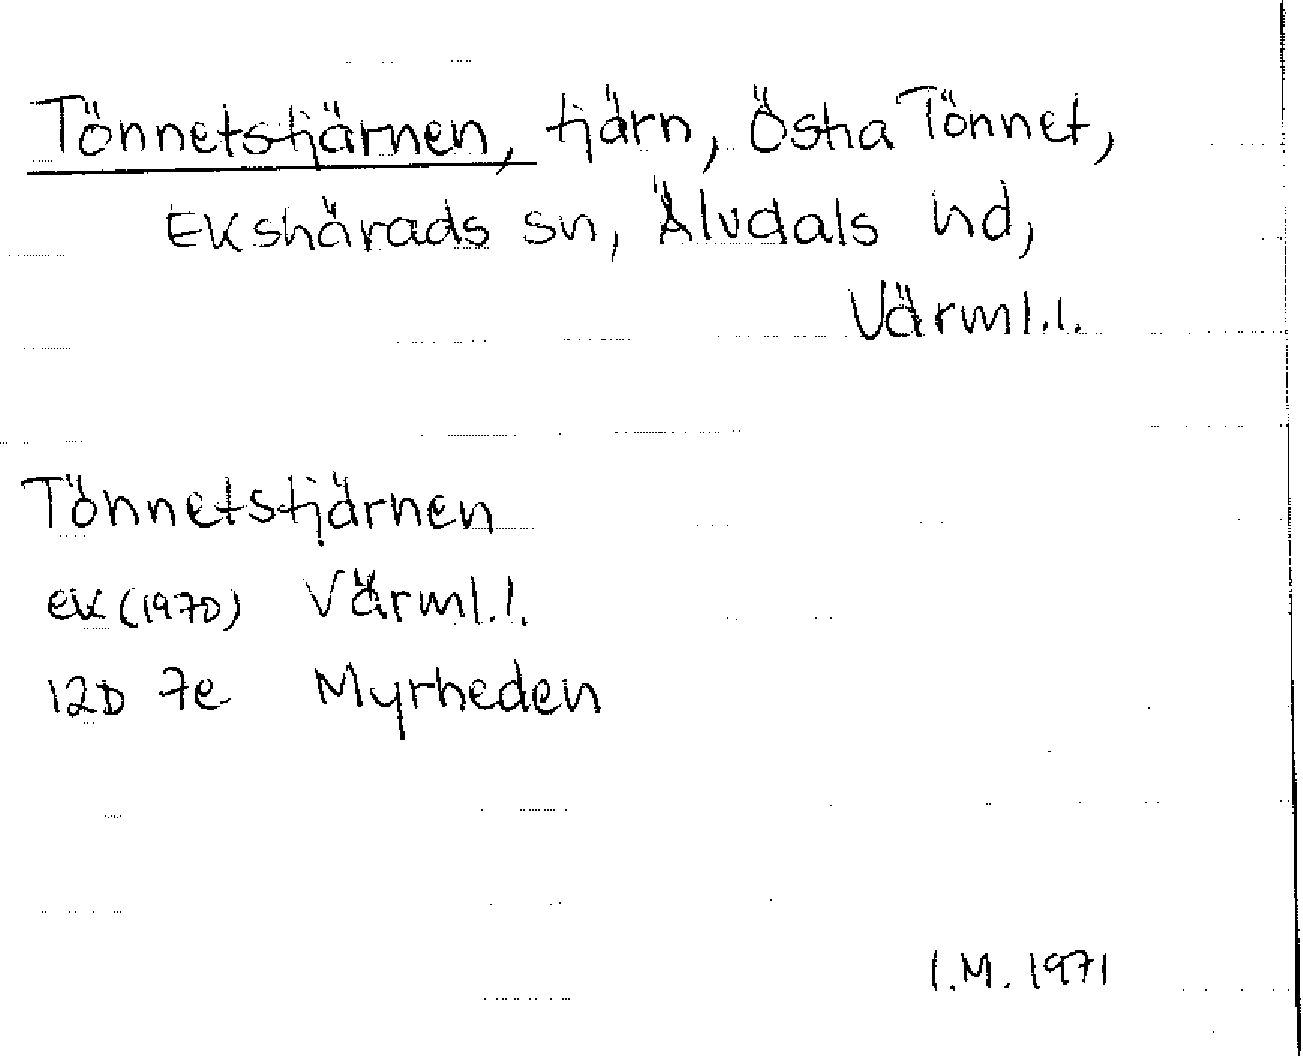 Tönnetstjärnen, tjärn, Östra Tönnet,
Ekshärads sn, Älvdals hd,
Värml.l.
Tönnetstjärnen
ek (1970) Värml.l.
12D 7e Myrheden
I.M. 1971